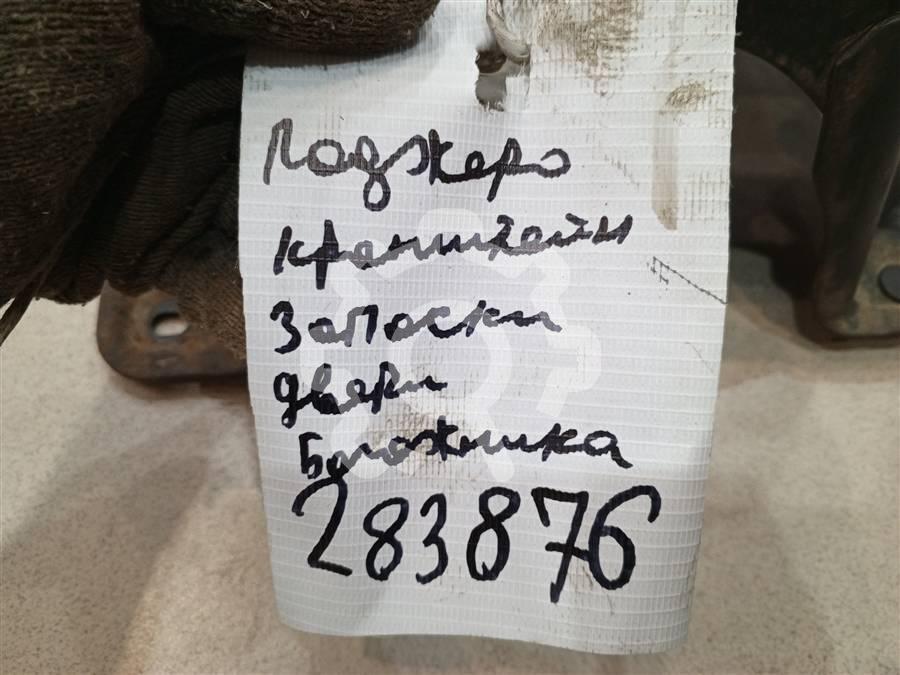 Паджеро
кронштейн
запаски
двери
Багажника
283876